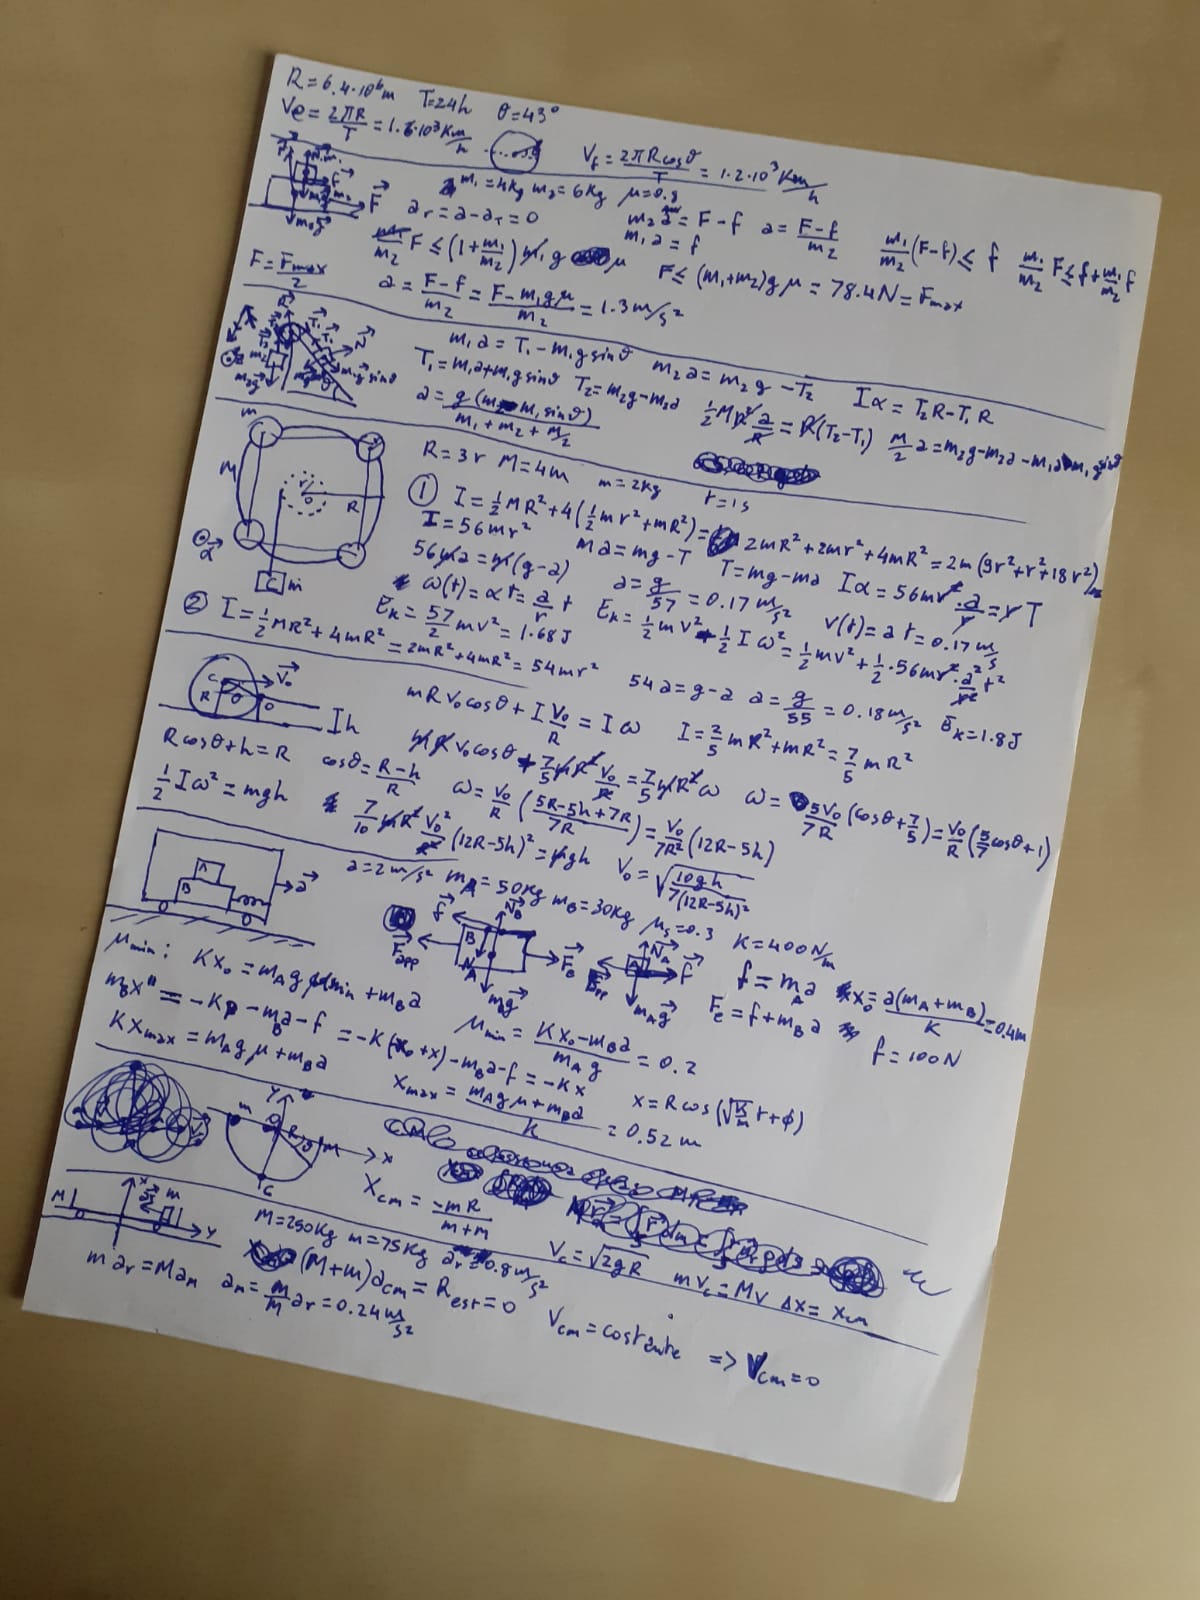 R = 6.4·10⁶m T=24h θ=43°
Ve = 2πR/T = 1.6·10³ Km/h Vf = 2πRcosθ/T = 1.2·10³ Km/h
m₁ = 4kg m₂ = 6kg μ=0.8
ar = a - aT = 0 m₂a = F - f a = (F-f)/m₂ m₁/m₂ (F-f) ≤ f m₁/m₂ F ≤ f + m₁/m₂ f
m₁a = f
m₁/m₂ F ≤ (1 + m₁/m₂) m₁ g μ F ≤ (m₁+m₂)gμ = 78.4N = Fmax
F = Fmax/2 a = (F-f)/m₂ = (F - m₁gμ)/m₂ = 1.3 m/s²
m₁a = T₁ - m₁g sinθ m₂a = m₂g - T₂ Iα = T₂R - T₁R
T₁ = m₁a + m₁g sinθ T₂ = m₂g - m₂a ½MR² a/R = R(T₂-T₁) M/2 a = m₂g - m₂a - m₁a - m₁g sinθ
a = g(m₂ - m₁ sinθ)/(m₁ + m₂ + M/2)
R = 3r M = 4m m = 2kg t = 1s
① I = ½MR² + 4(½mr² + mR²) = 2mR² + 2mr² + 4mR² = 2m(9r² + r² + 18r²)
I = 56mr² ma = mg - T T = mg - ma Iα = 56mr² · a/r = rT
56ma = m(g-a) a = g/57 = 0.17 m/s² v(t) = at = 0.17 m/s
ω(t) = αt = a/r t Ek = ½mv² + ½Iω² = ½mv² + ½·56mr² · a²/r² t²
Ek = 57/2 mv² = 1.68J
② I = ½MR² + 4mR² = 2mR² + 4mR² = 54mr² 54a = g - a a = g/55 = 0.18 m/s² Ek = 1.8J
mRv₀cosθ + I v₀/R = Iω I = 2/5 mR² + mR² = 7/5 mR²
Rcosθ + h = R cosθ = (R-h)/R mRv₀cosθ + 7/5 mR² v₀/R = 7/5 mR²ω ω = 5v₀/7R (cosθ + 7/5) = v₀/R (5/7 cosθ + 1)
½Iω² = mgh ω = v₀/R ((5R - 5h + 7R)/7R) = v₀/7R² (12R - 5h)
7/10 mR² v₀²/R² (12R-5h)² = mgh v₀ = √(10gh/7(12R-5h)²)
a = 2m/s² mA = 50kg mB = 30kg μs = 0.3 K = 400N/m
μmin: Kx₀ = mAgμmin + mBa f = mAa x₀ = a(mA+mB)/K = 0.4m
Fe = f + mBa f = 100N
mBx'' = -Kp - mBa - f = -K(x₀+x) - mBa - f = -Kx μmin = (Kx₀ - mBa)/(mAg) = 0.2
Kxmax = mAgμ + mBa xmax = (mAgμ + mBa)/K = 0.52m x = Rcos(√(K/m) t + φ)
Xcm = -mR/(m+M)
Vc = √2gR mVc = MV Δx = Xcm
M = 250kg m = 75kg ar = 0.8m/s²
mar = Mam am = m/M ar = 0.24 m/s² (M+m)acm = Rest = 0 Vcm = costante => Vcm = 0